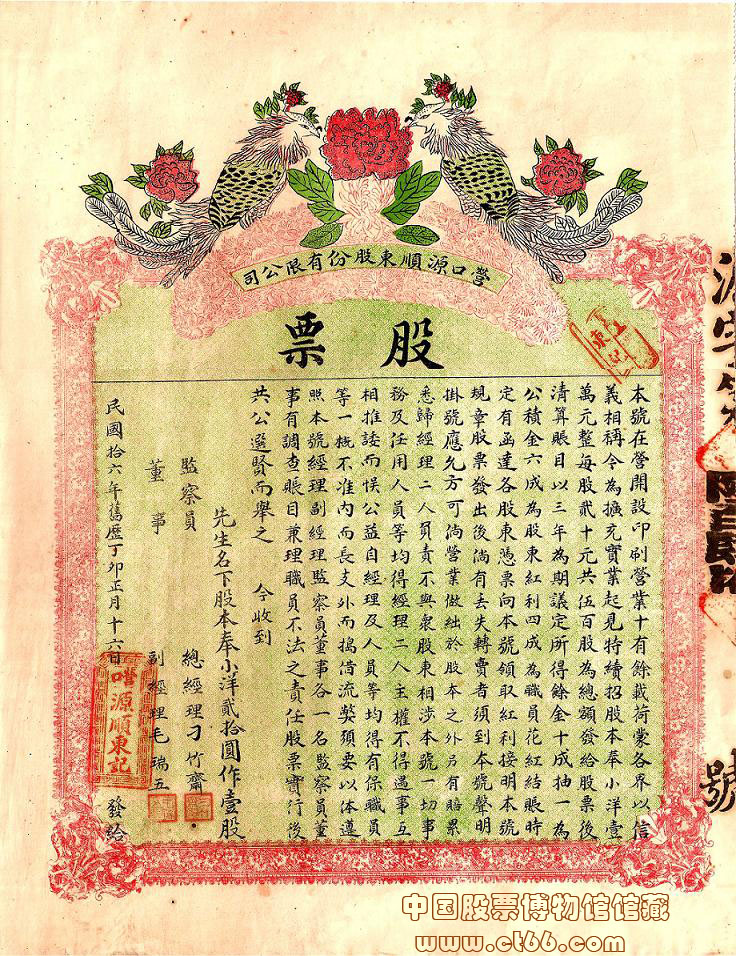 營口源順東股份有限公司
股票
本號在營開設印刷營業十有餘載荷蒙各界以信
義相稱今為擴充實業起見特續招股本奉小洋壹
萬元整每股貳十元共伍百股為總額發給股票後
清算賬目以三年為期議定所得餘金十成抽一為
公積金六成為股東紅利四成為職員花紅結賬時
定有函達各股東憑票向本號領取紅利接明本號
規章股票發出後倘有丟失轉賣者須到本號聲明
掛號應允方可倘營業做絀於股本之外另有賠累
悉歸經理二人負責不與衆股東相涉本號一切事
務及任用人員等均得經理二人主權不得遇事互
相推諉而悞公益自經理及人員等均得有保職員
等一概不准內而長支外而搗借流獘須要以体遵
照本號經理副經理監察員董事各一名監察員董
事有調查賬目兼理職員不法之責任股票實行後
共公選賢而舉之 今收到
先生名下股本奉小洋貳拾圓作壹股
監察員 總經理刁竹齋
董事 副經理毛瑞五
民國拾六年舊歷丁卯正月十六日 發給
源順東記
號
中国股票博物馆馆藏
www.ct66.com